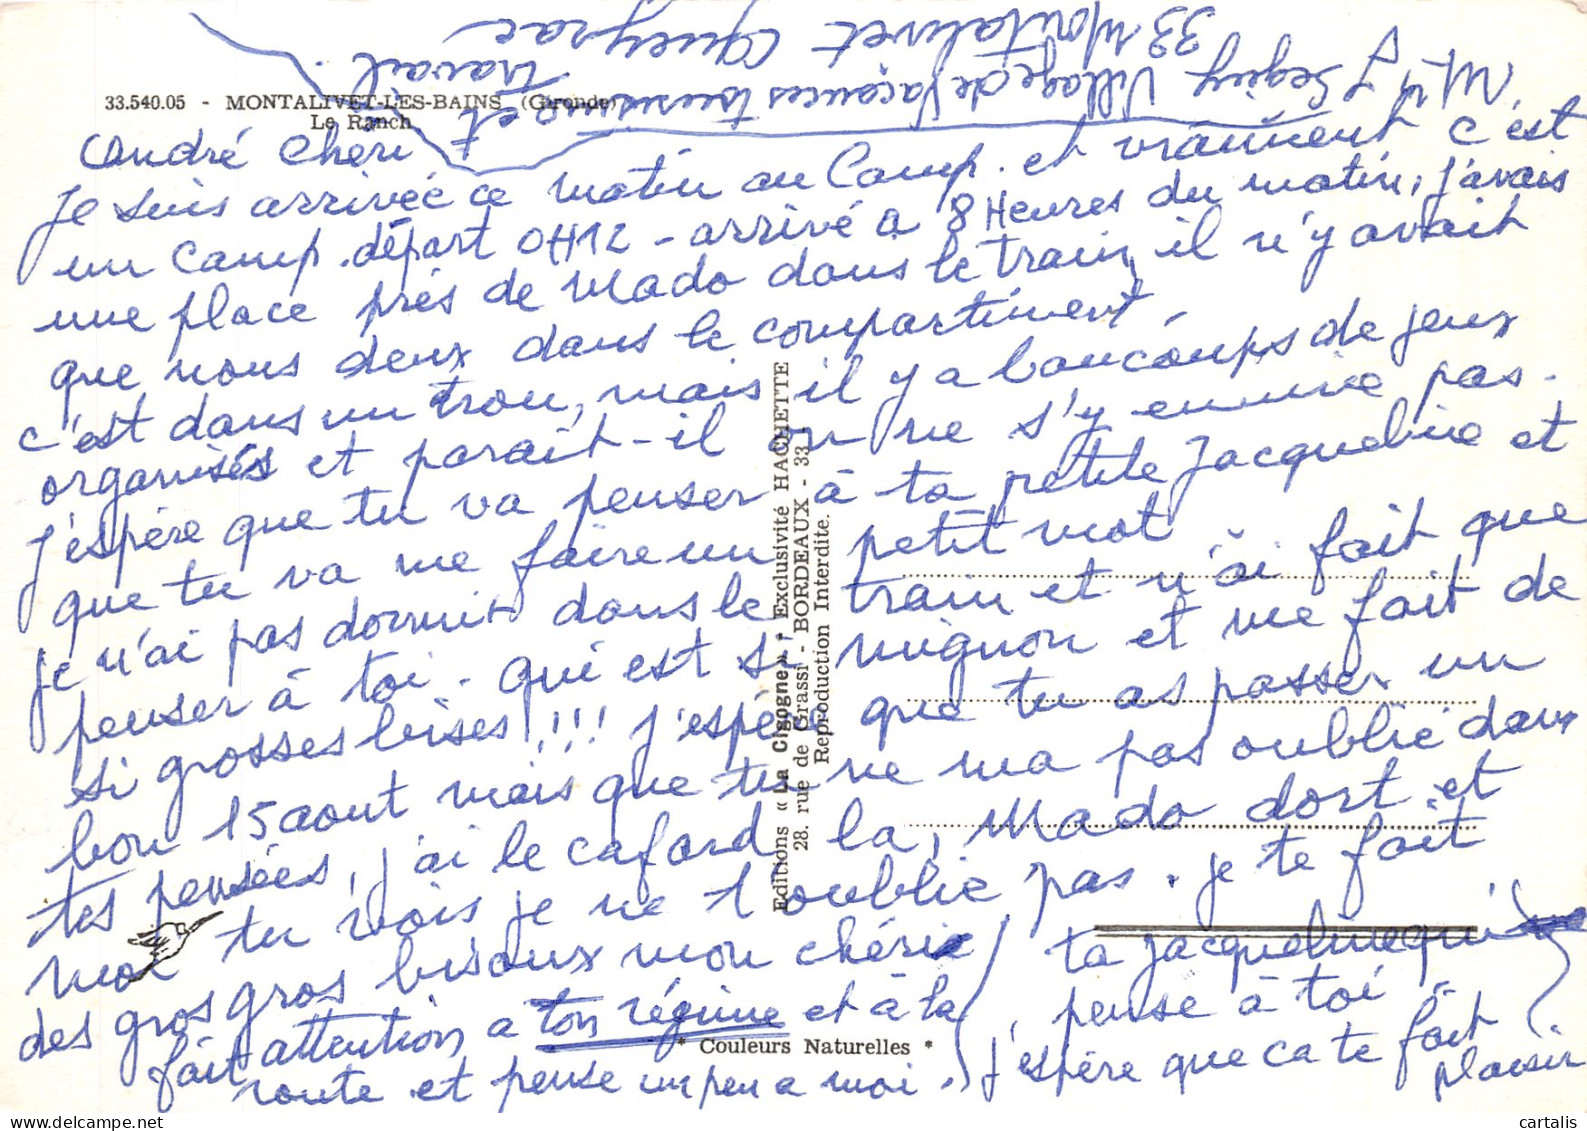 Mr et J Seguy Village de Vacances tourisme et travail.
33 Montalivet Queyrac
33.540.05 - MONTALIVET-LES-BAINS (Gironde)
Le Ranch
André Chéri
Je suis arrivée ce matin au Camp. et vraiment c'est
un Camp. départ 0H12 - arrivé a 8 Heures du matin, j'avais
une place près de Mado dans le train, il n'y avait
que nous deux dans le compartiment.
c'est dans un trou, mais il y a baucoups de jeux
organisés et parait-il on ne s'y ennuie pas.
J'espère que tu va penser à ta petite Jacqueline et
que tu va me faire un petit mot
je n'ai pas dormit dans le train et n'ai fait que
penser à toi. qui est si mignon et me fait de
si grosses bises!!!! J'espère que tu as passer un
bon 15 aout mais que tu ne ma pas oublié dans
tes pensées, j'ai le cafard la, Mado dort et
moi tu vois je ne t'oublie pas. je te fait
des gros gros bisoux mon chéri ta Jacqueline qui
pense à toi
fait attention a ton régime et à la
route et pense un peu a moi.
J'espère que ca te fait
plaisir
Editions « La Cigogne » - Exclusivité HACHETTE
28. rue de Grassi - BORDEAUX - 33
Reproduction Interdite.
* Couleurs Naturelles *
cartalis